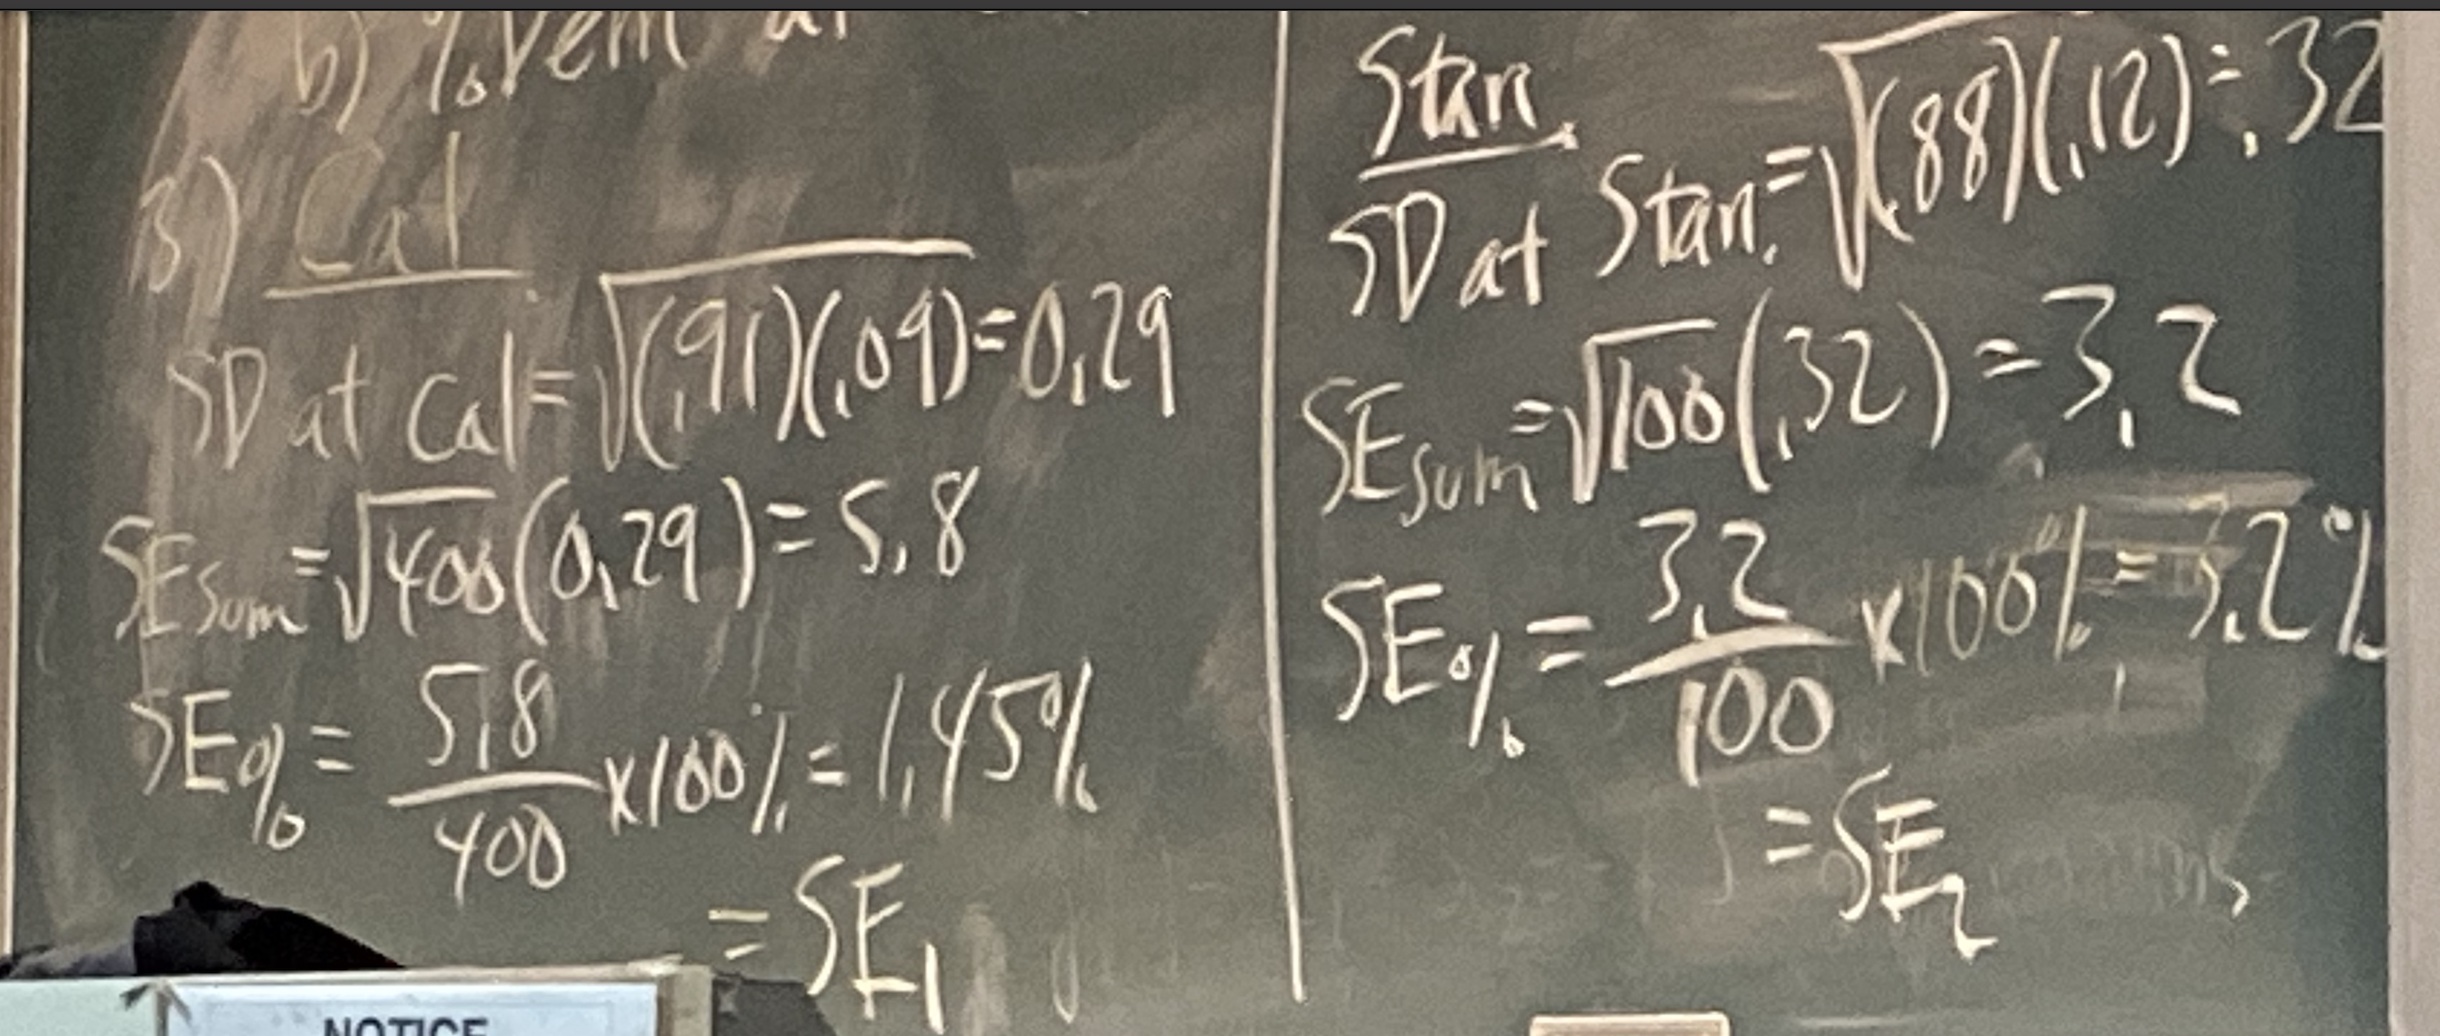 b) % Dem at
3) Cal
SD at Cal = √(.91)(.09) = 0.29
SE sum = √400 (0.29) = 5.8
SE % = 5.8/400 x 100% = 1.45%
= SE₁
Stan.
SD at Stan. = √(.88)(.12) = .32
SE sum = √100 (.32) = 3.2
SE % = 3.2/100 x 100% = 3.2%
= SE₂
NOTICE